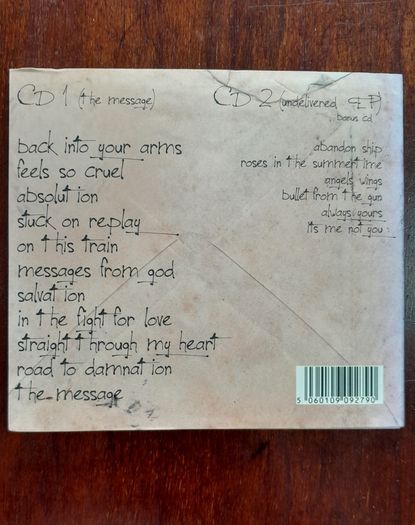 CD 1 (the message)
back into your arms
feels so cruel
absolution
stuck on replay
on this train
messages from god
salvation
in the fight for love
straight through my heart
road to damnation
the message
CD 2 (undelivered EP)
bonus cd
abandon ship
roses in the summertime
angels wings
bullet from the gun
always yours
its me not you
5 060109 092790